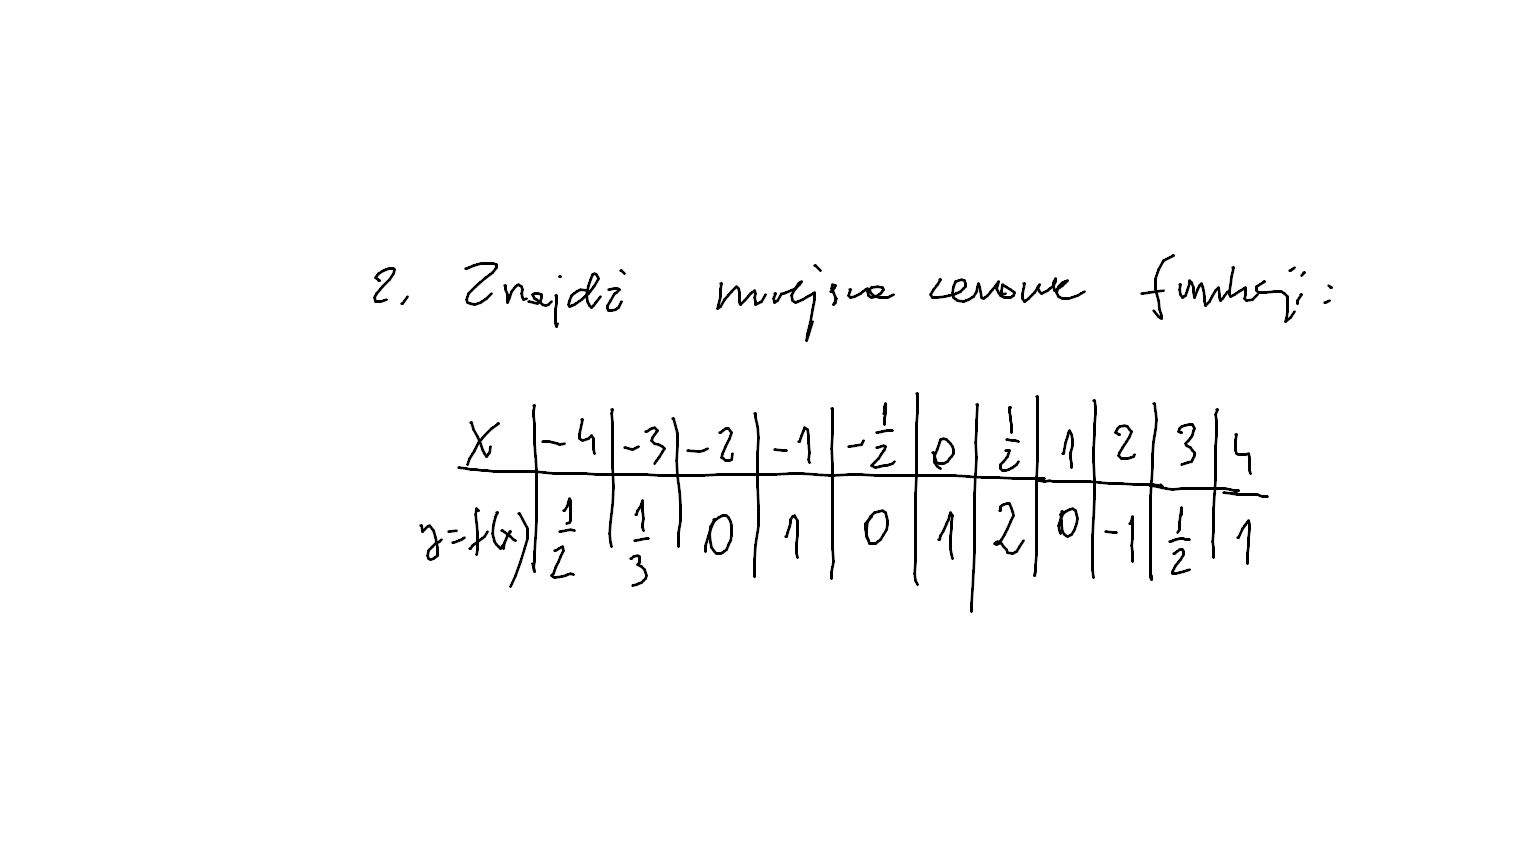 2. Znajdź miejsca zerowe funkcji:
x | -4 | -3 | -2 | -1 | -1/2 | 0 | 1/2 | 1 | 2 | 3 | 4
y=f(x) | 1/2 | 1/3 | 0 | 1 | 0 | 1 | 2 | 0 | -1 | 1/2 | 1